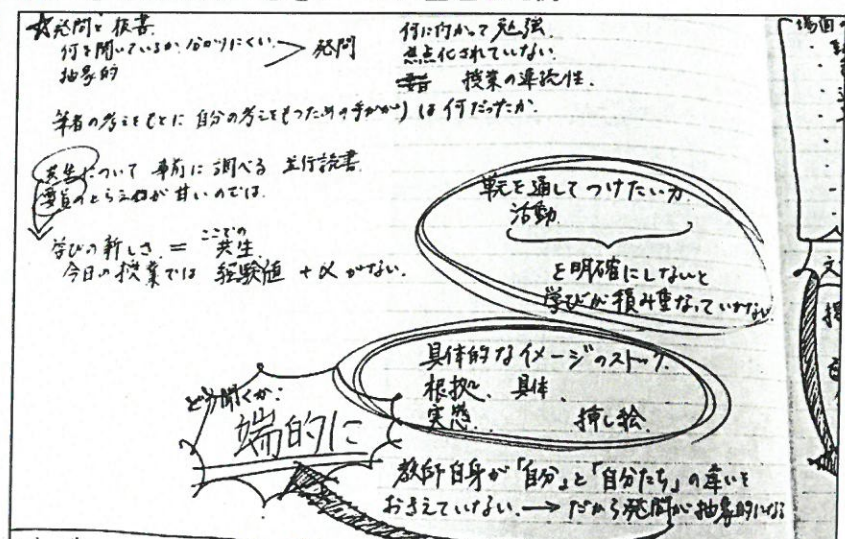 ☆発問と板書
何を聞いているか分かりにくい
抽象的
> 発問
何に向かって勉強
焦点化されていない
授業の連続性.
筆者の考えをもとに自分の考えをもつための手がかりは何だったか.
共生について 事前に調べる 並行読書
要旨のとらえ が甘いのでは.
学びの新しさ = ここでの共生
今日の授業では 経験値 +α がない.
単元を通してつけたい力
活動
を明確にしないと
学びが積み重なっていかない
具体的なイメージのストック.
根拠、具体
実態. 挿し絵.
どう聞くか:
端的に
教師自身が「自分」と「自分たち」の違いを
おさえていない.→だから発問が抽象的になる
場面